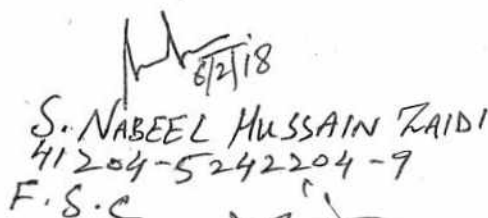 6/2/18
S. NABEEL HUSSAIN ZAIDI
41204-5242204-9
F.S.C